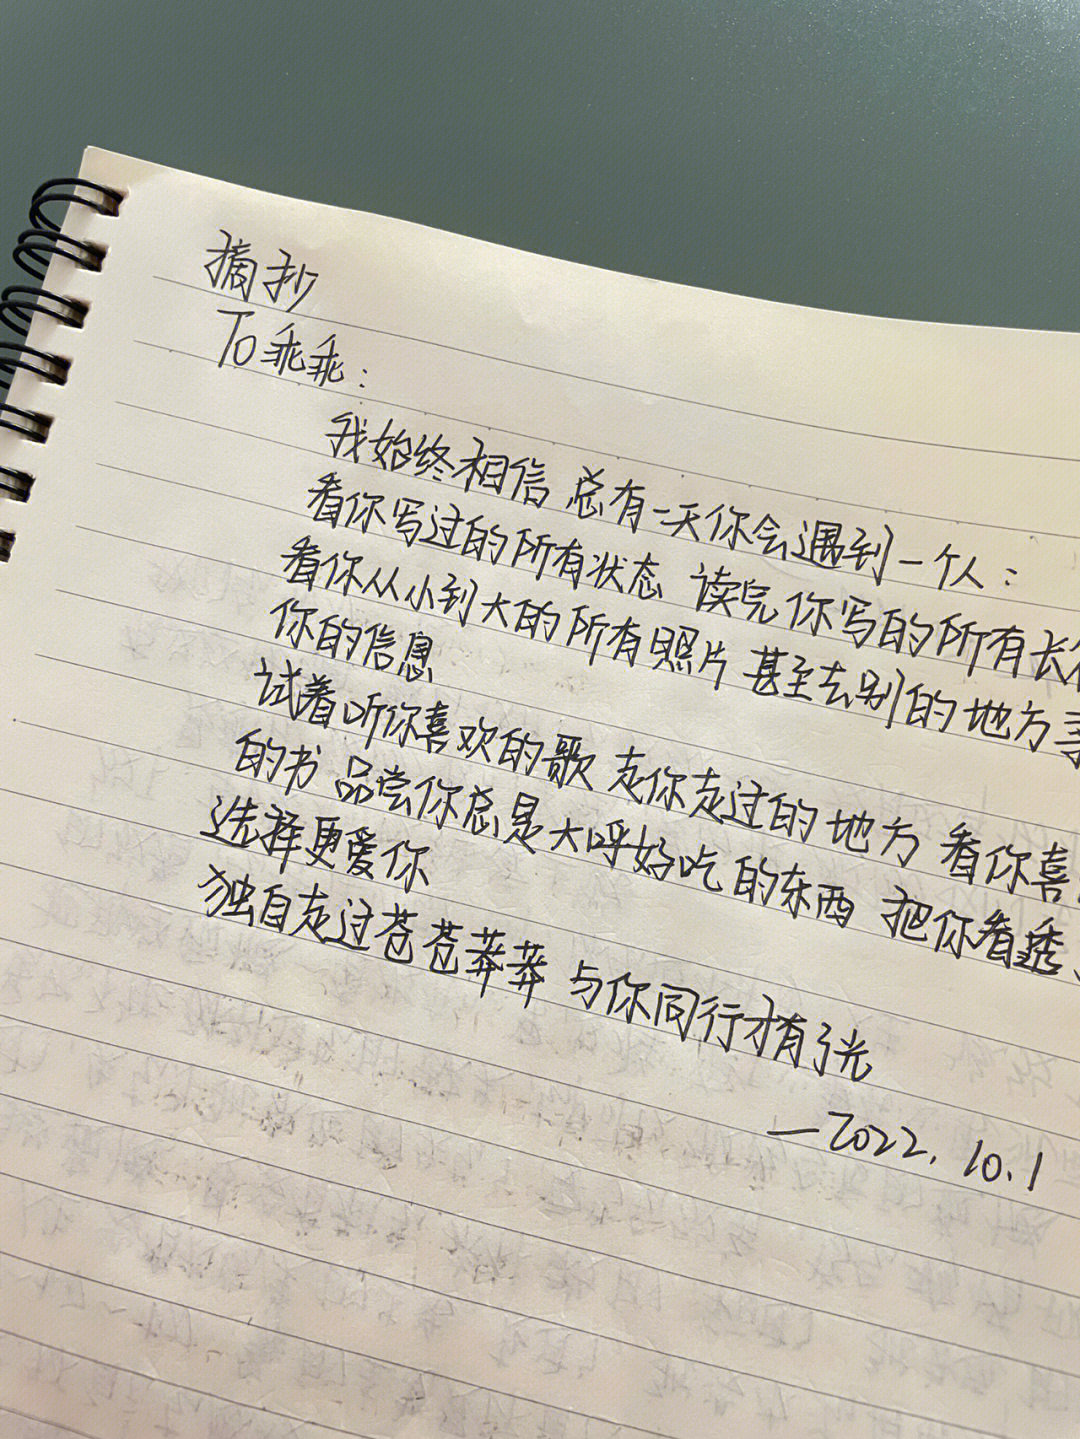 摘抄
To乖乖：
我始终相信 总有一天你会遇到一个人：
看你写过的所有状态 读完你写的所有长
看你从小到大的所有照片 甚至去别的地方寻
你的信息
试着听你喜欢的歌 走你走过的地方 看你喜
的书 品尝你总是大呼好吃的东西 把你看透
选择更爱你
独自走过苍苍莽莽 与你同行才有了光
—2022.10.1